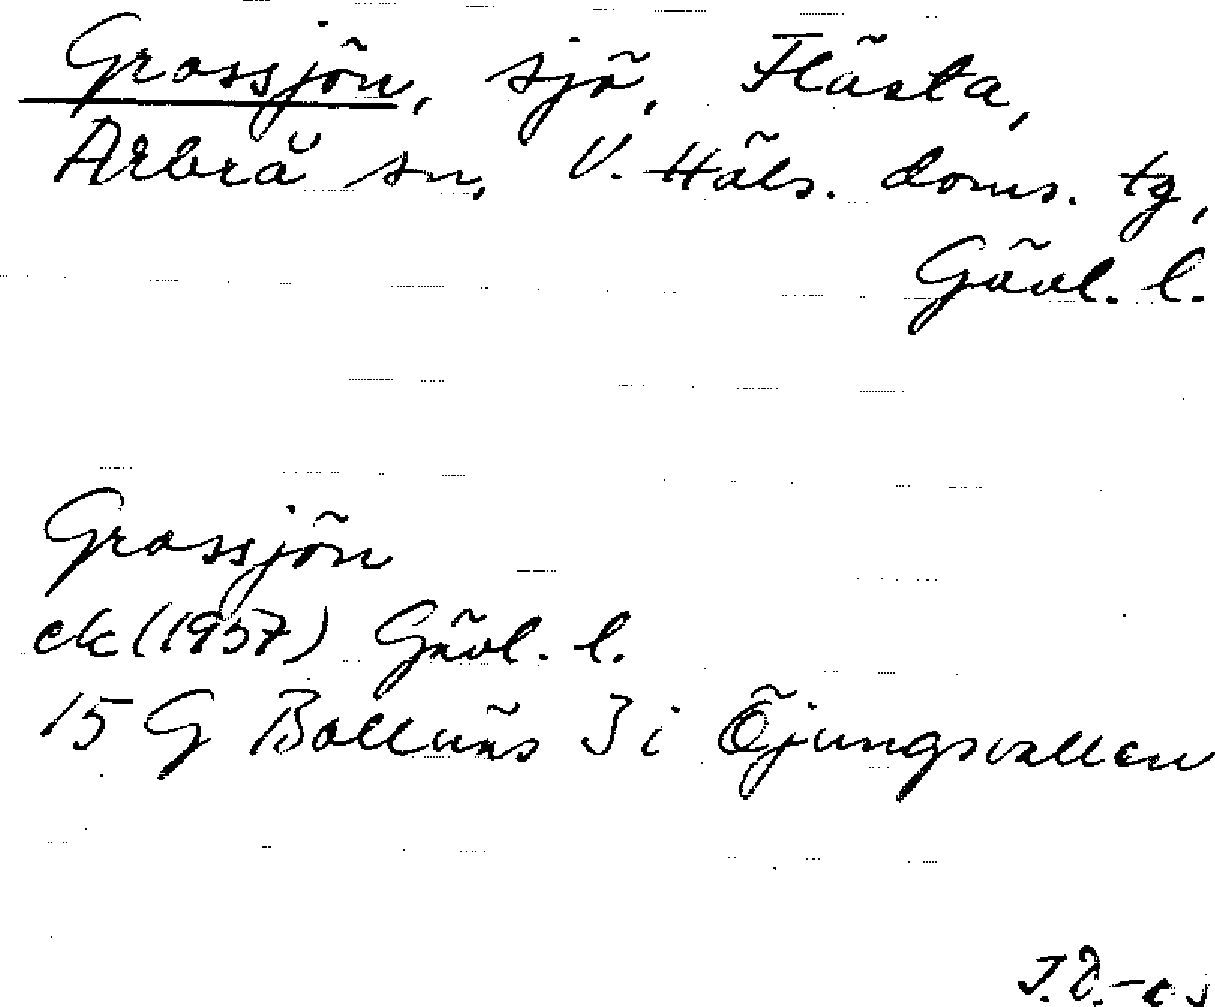 Grossjön, sjö, Flästa,
Arbrå sn, V. Häls. doms. tg,
Gävl. l.
Grossjön
ek (1957) Gävl. l.
15 G Bollnäs 3 i Öjungsvallen